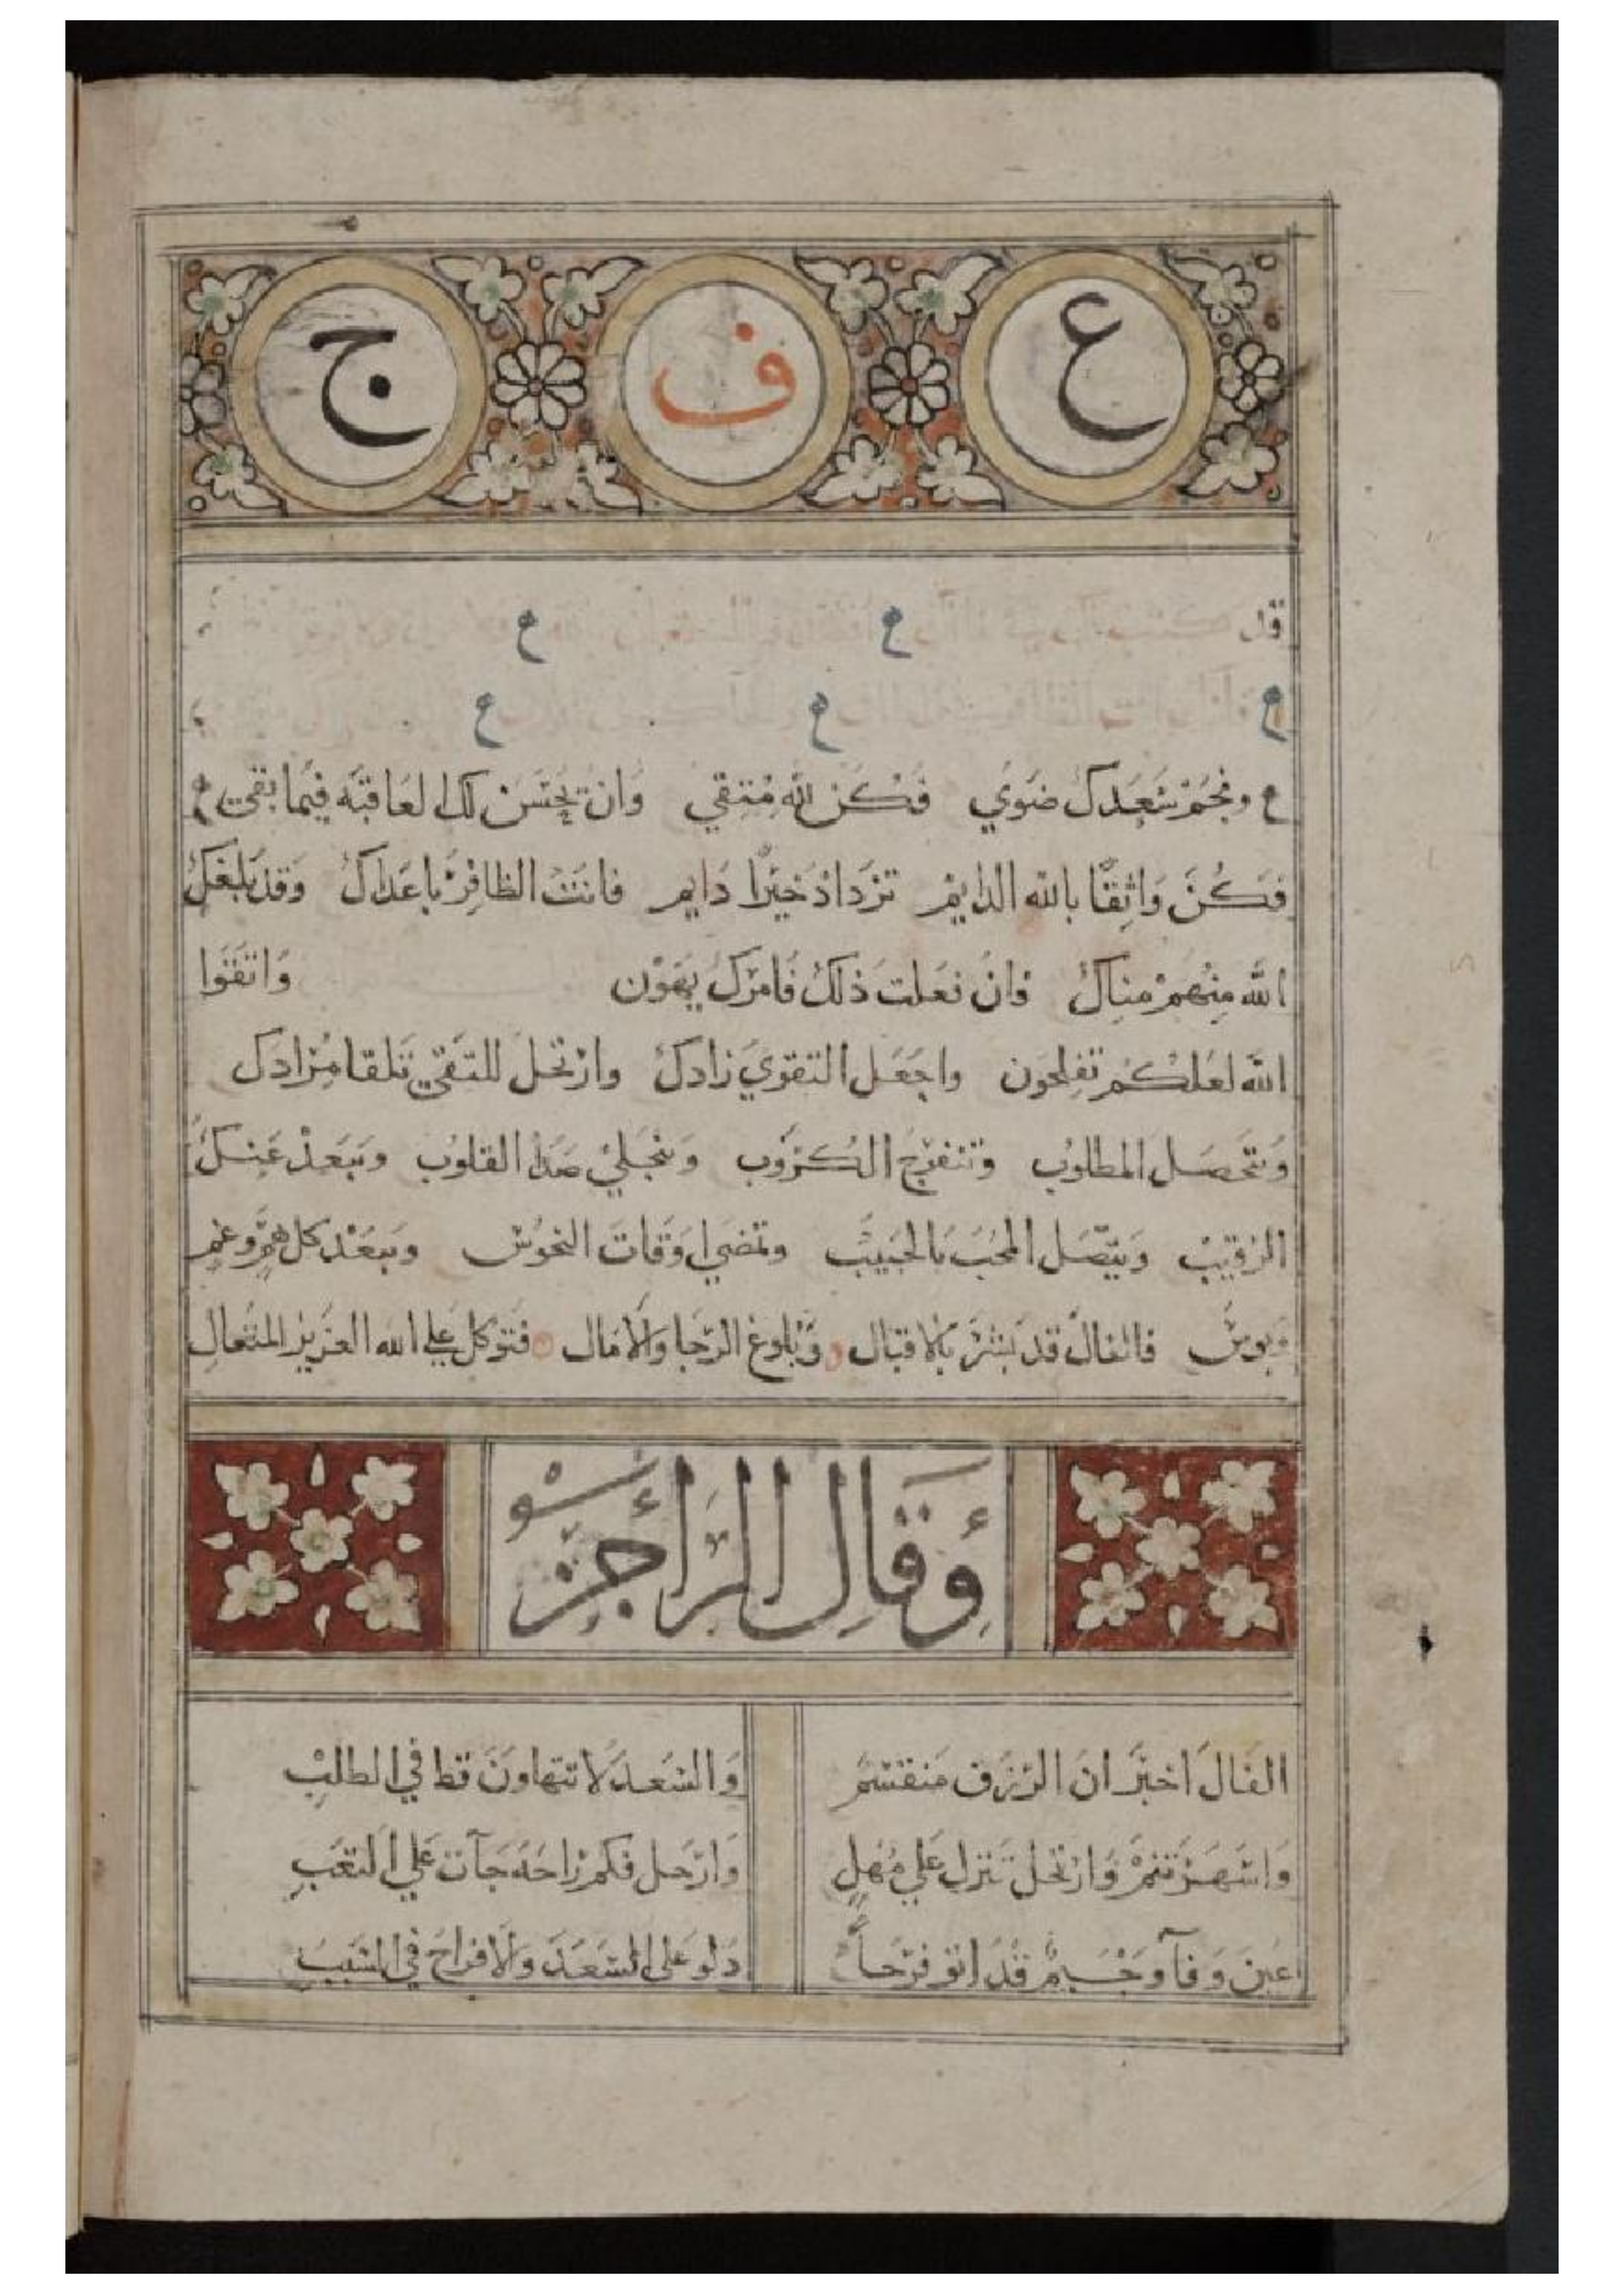 ع ف ج
قل ع ع
ع ع ع
ع ونجم سعدك ضوي فكن لله متقي وان يحسن لك العاقبه فيما بقي
فكن واثقا بالله الدايم تزداد خيرا دايم فانت الظافر باعداك وقد بلغك
الله منهم مناك وان فعلت ذلك فامرك يهون واتقوا
الله لعلكم تفلحون واجعل التقوي زادك وارتحل للتقي تلقا مرادك
ويتحصل المطلوب وتنفرج الكروب وينجلي صدا القلوب ويبعد عنك
الرقيب ويتصل المحب بالحبيب وتمضي اوقات النحوس ويبعد كل هم وغم
وبوس فالفال قد بشر بالاقبال وبلوغ الرجا والامال فتوكل علي الله العزيز المتعال
وقال الراجز
الفال اخبر ان الرزق منقسم والسعد لا تتهاون قط في الطلب
واسهر تنم وارتحل تنزل علي مهل وارحل فكم راحة جآت علي التعب
عين وفآ وجيم قد اتو فرحاً دلو على السعد والافراح في السبب